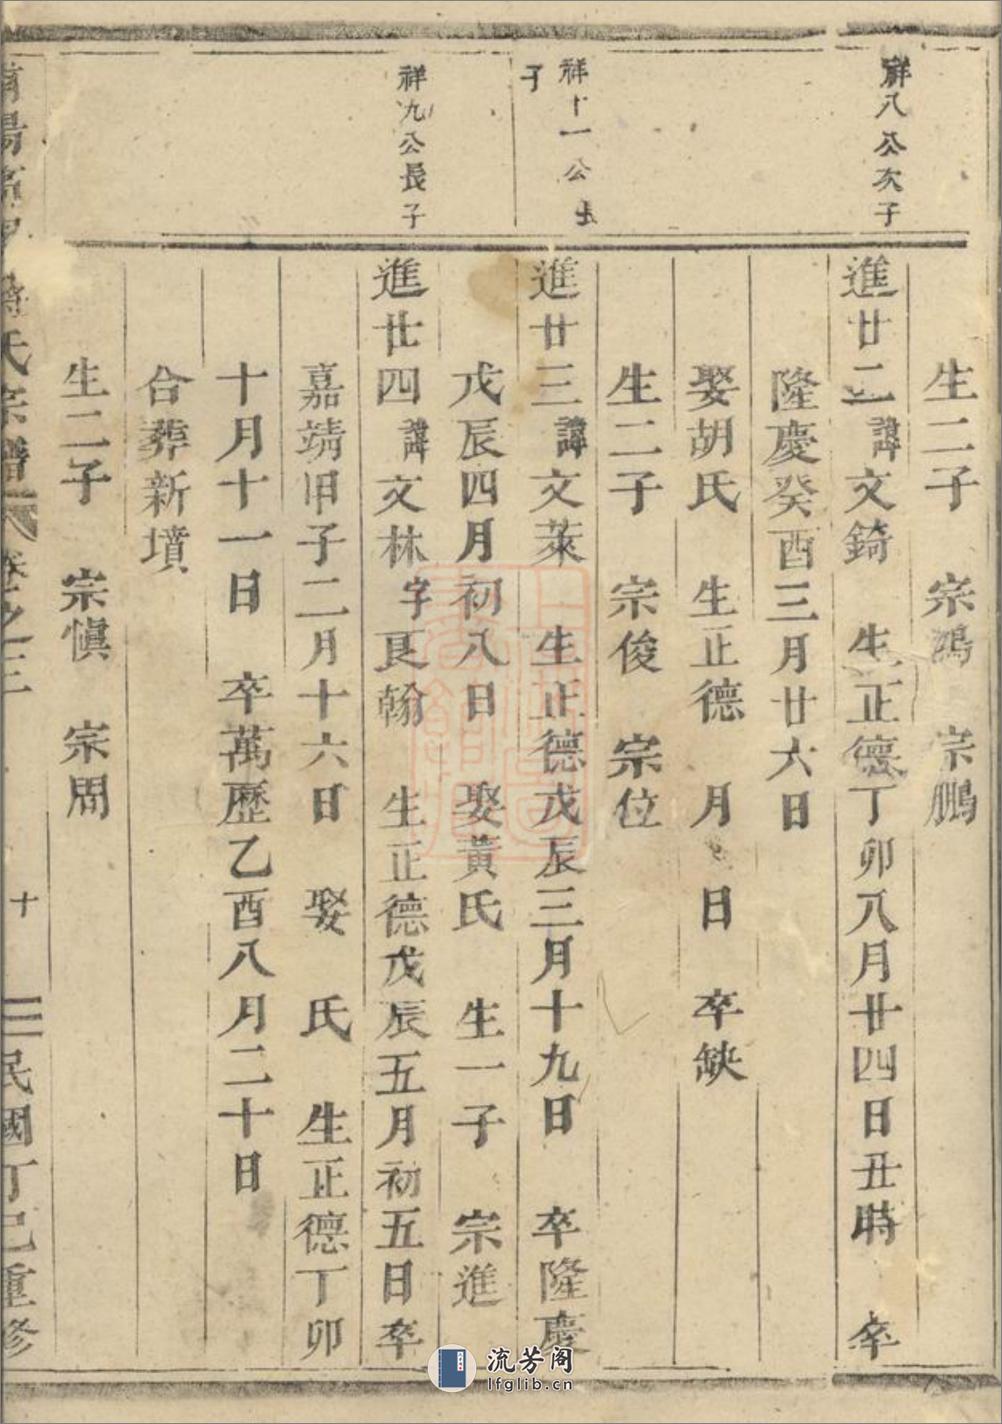 生二子　宗鴻　宗鵬
祥八公次子
進廿二諱文錡　生正德丁卯八月廿四日丑時　卒
隆慶癸酉三月廿六日
娶胡氏　生正德　月　日　卒缺
生二子　宗俊　宗位
祥十一公長子
進廿三諱文萊　生正德戊辰三月十九日　卒隆慶
戊辰四月初八日　娶黃氏　生一子　宗進
祥九公長子
進廿四諱文林字艮翰　生正德戊辰五月初五日卒
嘉靖旧子二月十六日　娶　氏　生正德丁卯
十月十一日　卒萬歷乙酉八月二十日
合葬新墳
生二子　宗愼　宗周
氏宗譜　卷之三　十　民國丁巳重修
流芳阁
lfglib.cn